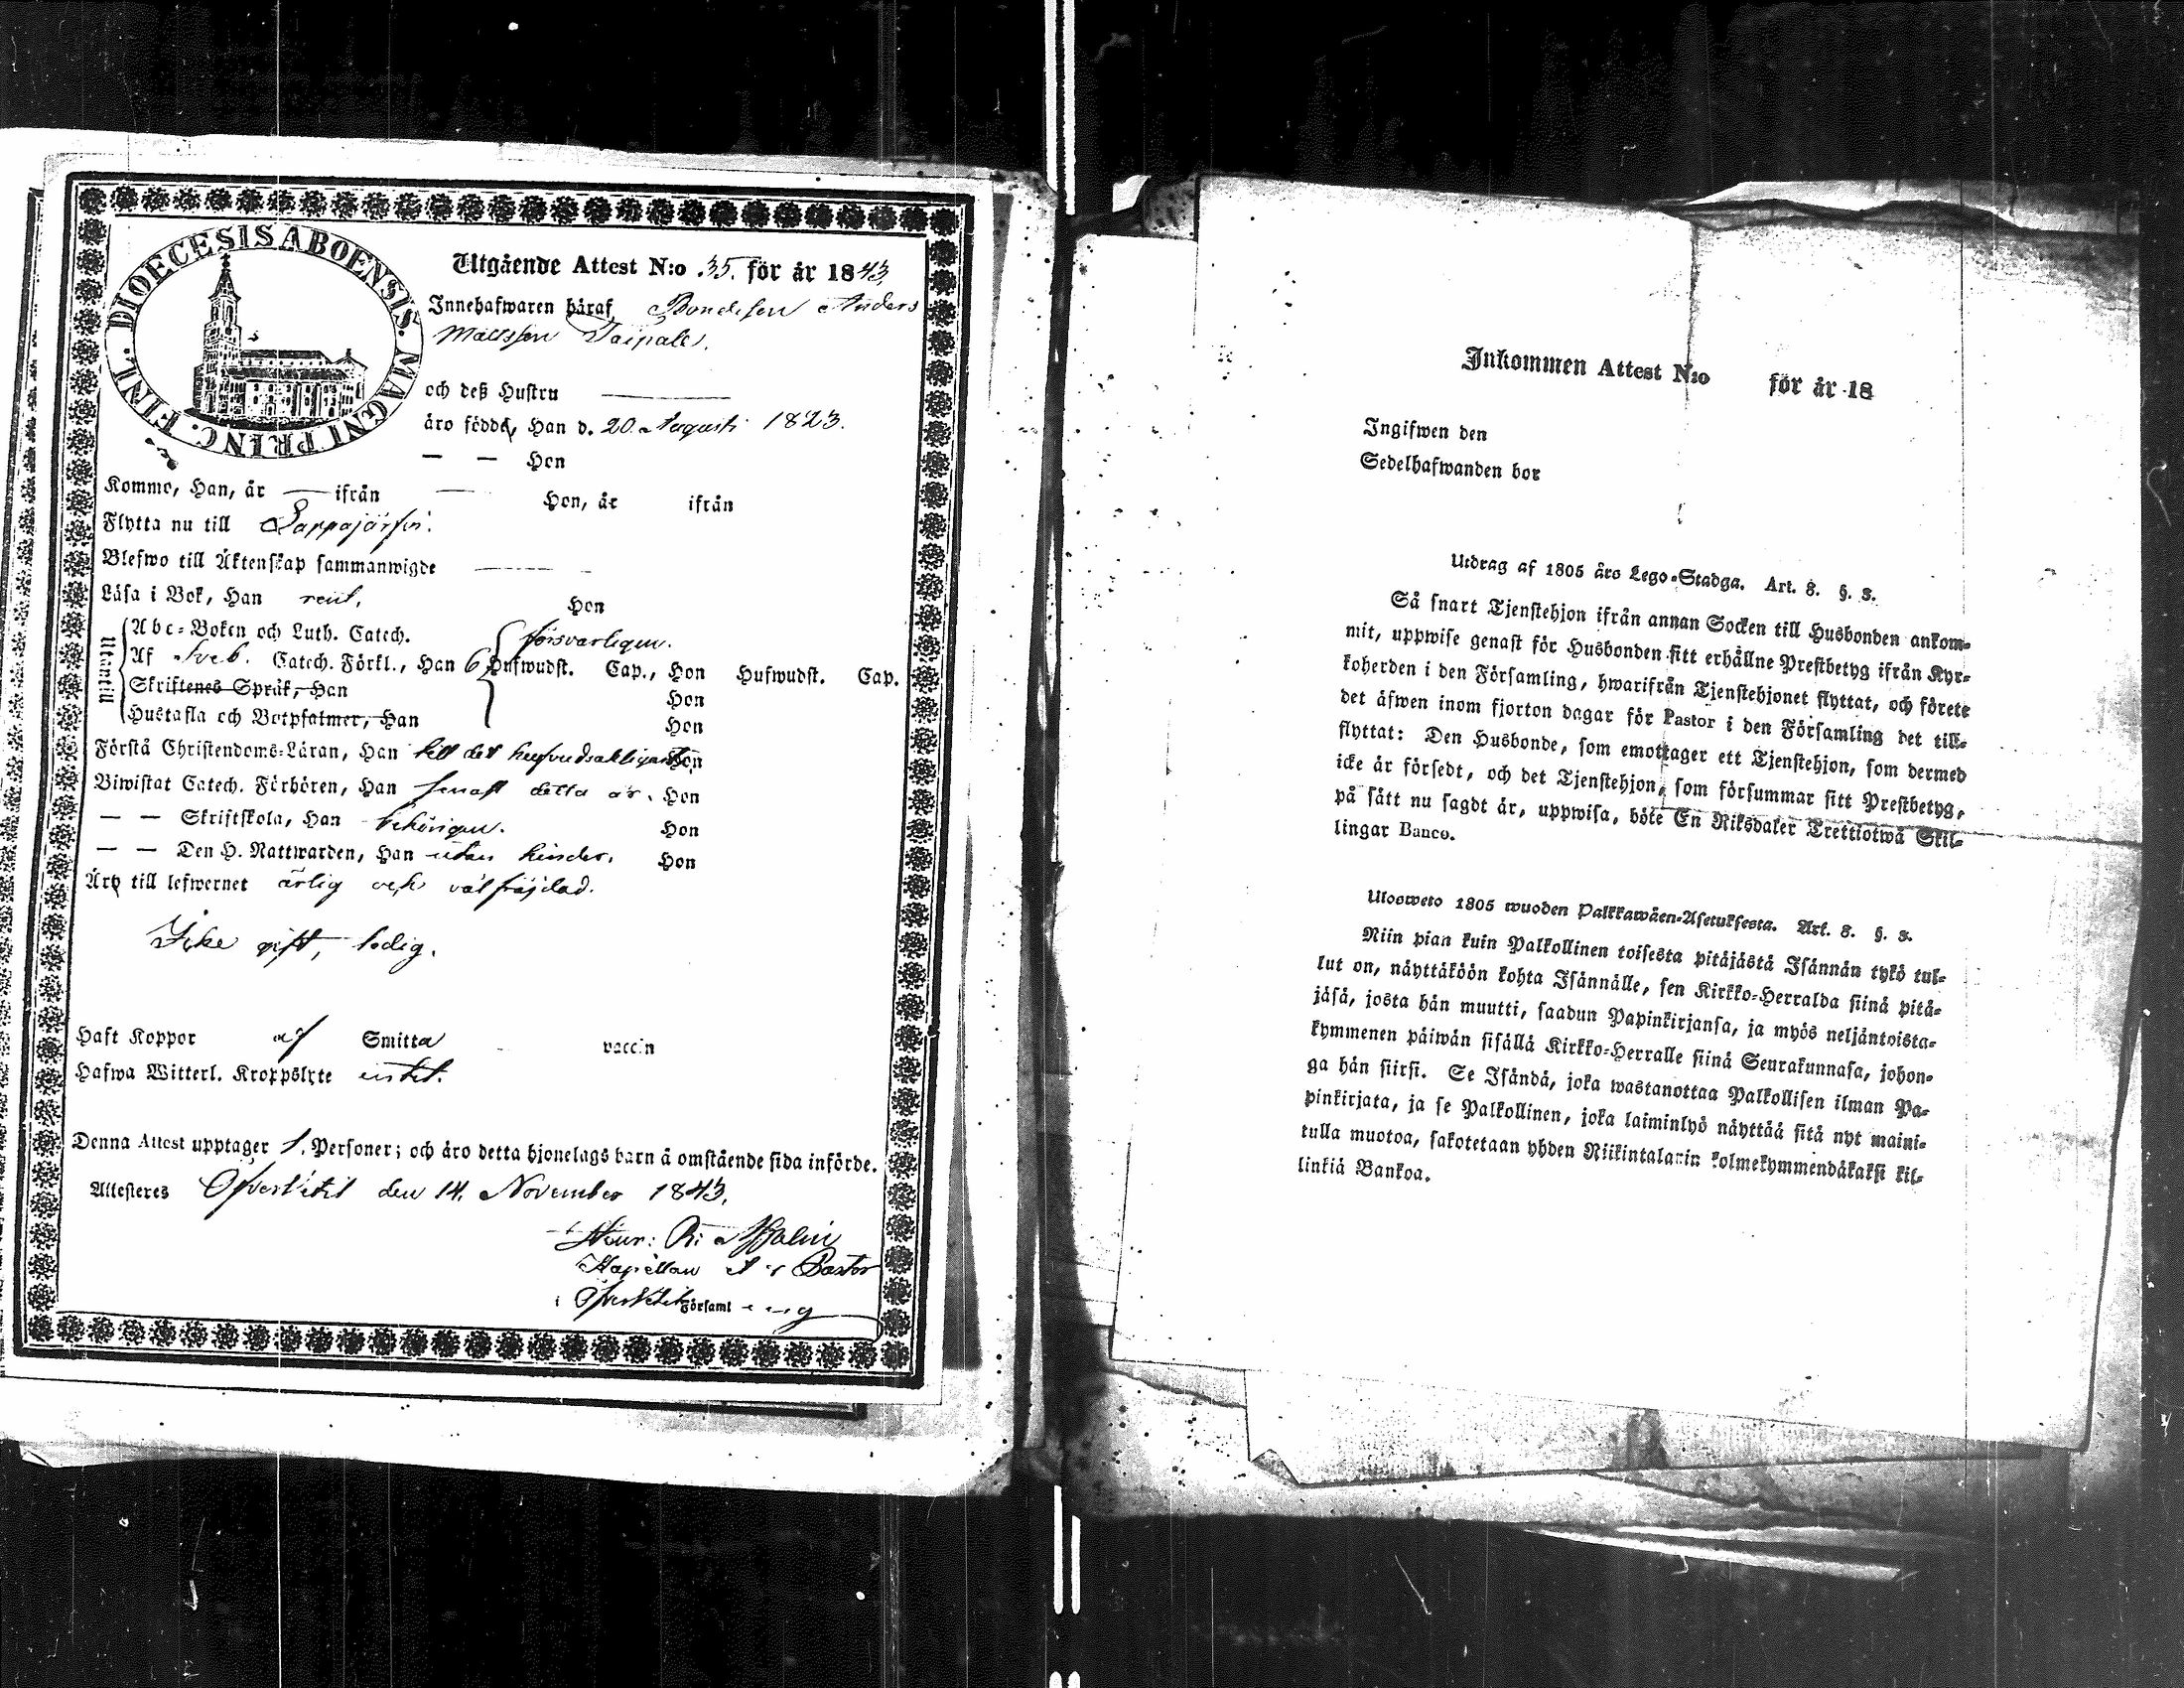 DIOECESIS ABOENSIS. MAGNI PRINC. FINL.
Utgående Attest N:o 35. för år 1843,
Innehafwaren häraf, Bondeson Anders
Mattsson Taipale,
och deß Hustru
äro födde, Han d. 20 Augusti 1823.
— — Hon
Kommo, Han, år — ifrån — Hon, år ifrån
Flytta nu till Lappajärfvi.
Blefwo till Äktenskap sammanwigde
Läsa i Bok, Han rent, Hon
Utantill
Abc-Boken och Luth. Catech. försvarligen.
Af Sveb. Catech. Förkl., Han 6 Hufwudst. Cap., Hon Hufwudst. Cap.
Skriftenes Språk, Han Hon
Hustafla och Botpsalmer, Han Hon
Förstå Christendoms-Läran, Han till det hufvudsakligaste, Hon
Biwistat Catech. Förhören, Han senast detta år. Hon
— — Skriftskola, Han behörigen. Hon
— — Den H. Nattwarden, Han utan hinder. Hon
Äro till lefwernet ärlig och välfräjdad.
Icke gift, ledig.
Haft Koppor af Smitta vaccin
Hafwa Witterl. Kroppslyte intet.
Denna Attest upptager 1. Personer; och äro detta hjonelags barn å omstående sida införde.
Attesteres Öfvervetil den 14. November 1843.
Pastor
i Församl
Inkommen Attest N:o för år 18
Ingifwen den
Sedelhafwanden bor
Utdrag af 1805 års Lego-Stadga. Art. 8. §. 3.
Så snart Tjenstehjon ifrån annan Socken till Husbonden ankom-
mit, uppwise genast för Husbonden sitt erhållne Prestbetyg ifrån Kyr-
koherden i den Församling, hwarifrån Tjenstehjonet flyttat, och förete
det äfwen inom fjorton dagar för Pastor i den Församling det till-
flyttat: Den Husbonde, som emottager ett Tjenstehjon, som dermed
icke är försedt, och det Tjenstehjon, som försummar sitt Prestbetyg,
på sätt nu sagdt är, uppwisa, böte En Riksdaler Trettiotwå Skil-
lingar Banco.
Ulosweto 1805 wuoden Palkkawäen-Asetuksesta. Art. 8. §. 3.
Niin pian kuin Palkollinen toisesta pitäjästä Isännän tykö tul-
lut on, näyttäköön kohta Isännälle, sen Kirkko-Herralda siinä pitä-
jäsä, josta hän muutti, saadun Papinkirjansa, ja myös neljäntoista-
kymmenen päiwän sisällä Kirkko-Herralle siinä Seurakunnasa, johon-
ga hän siirsi. Se Isändä, joka wastanottaa Palkollisen ilman Pa-
pinkirjata, ja se Palkollinen, joka laiminlyö näyttää sitä nyt maini-
tulla muotoa, sakotetaan yhden Riikintalarin kolmekymmendäkaksi kil-
linkiä Bankoa.